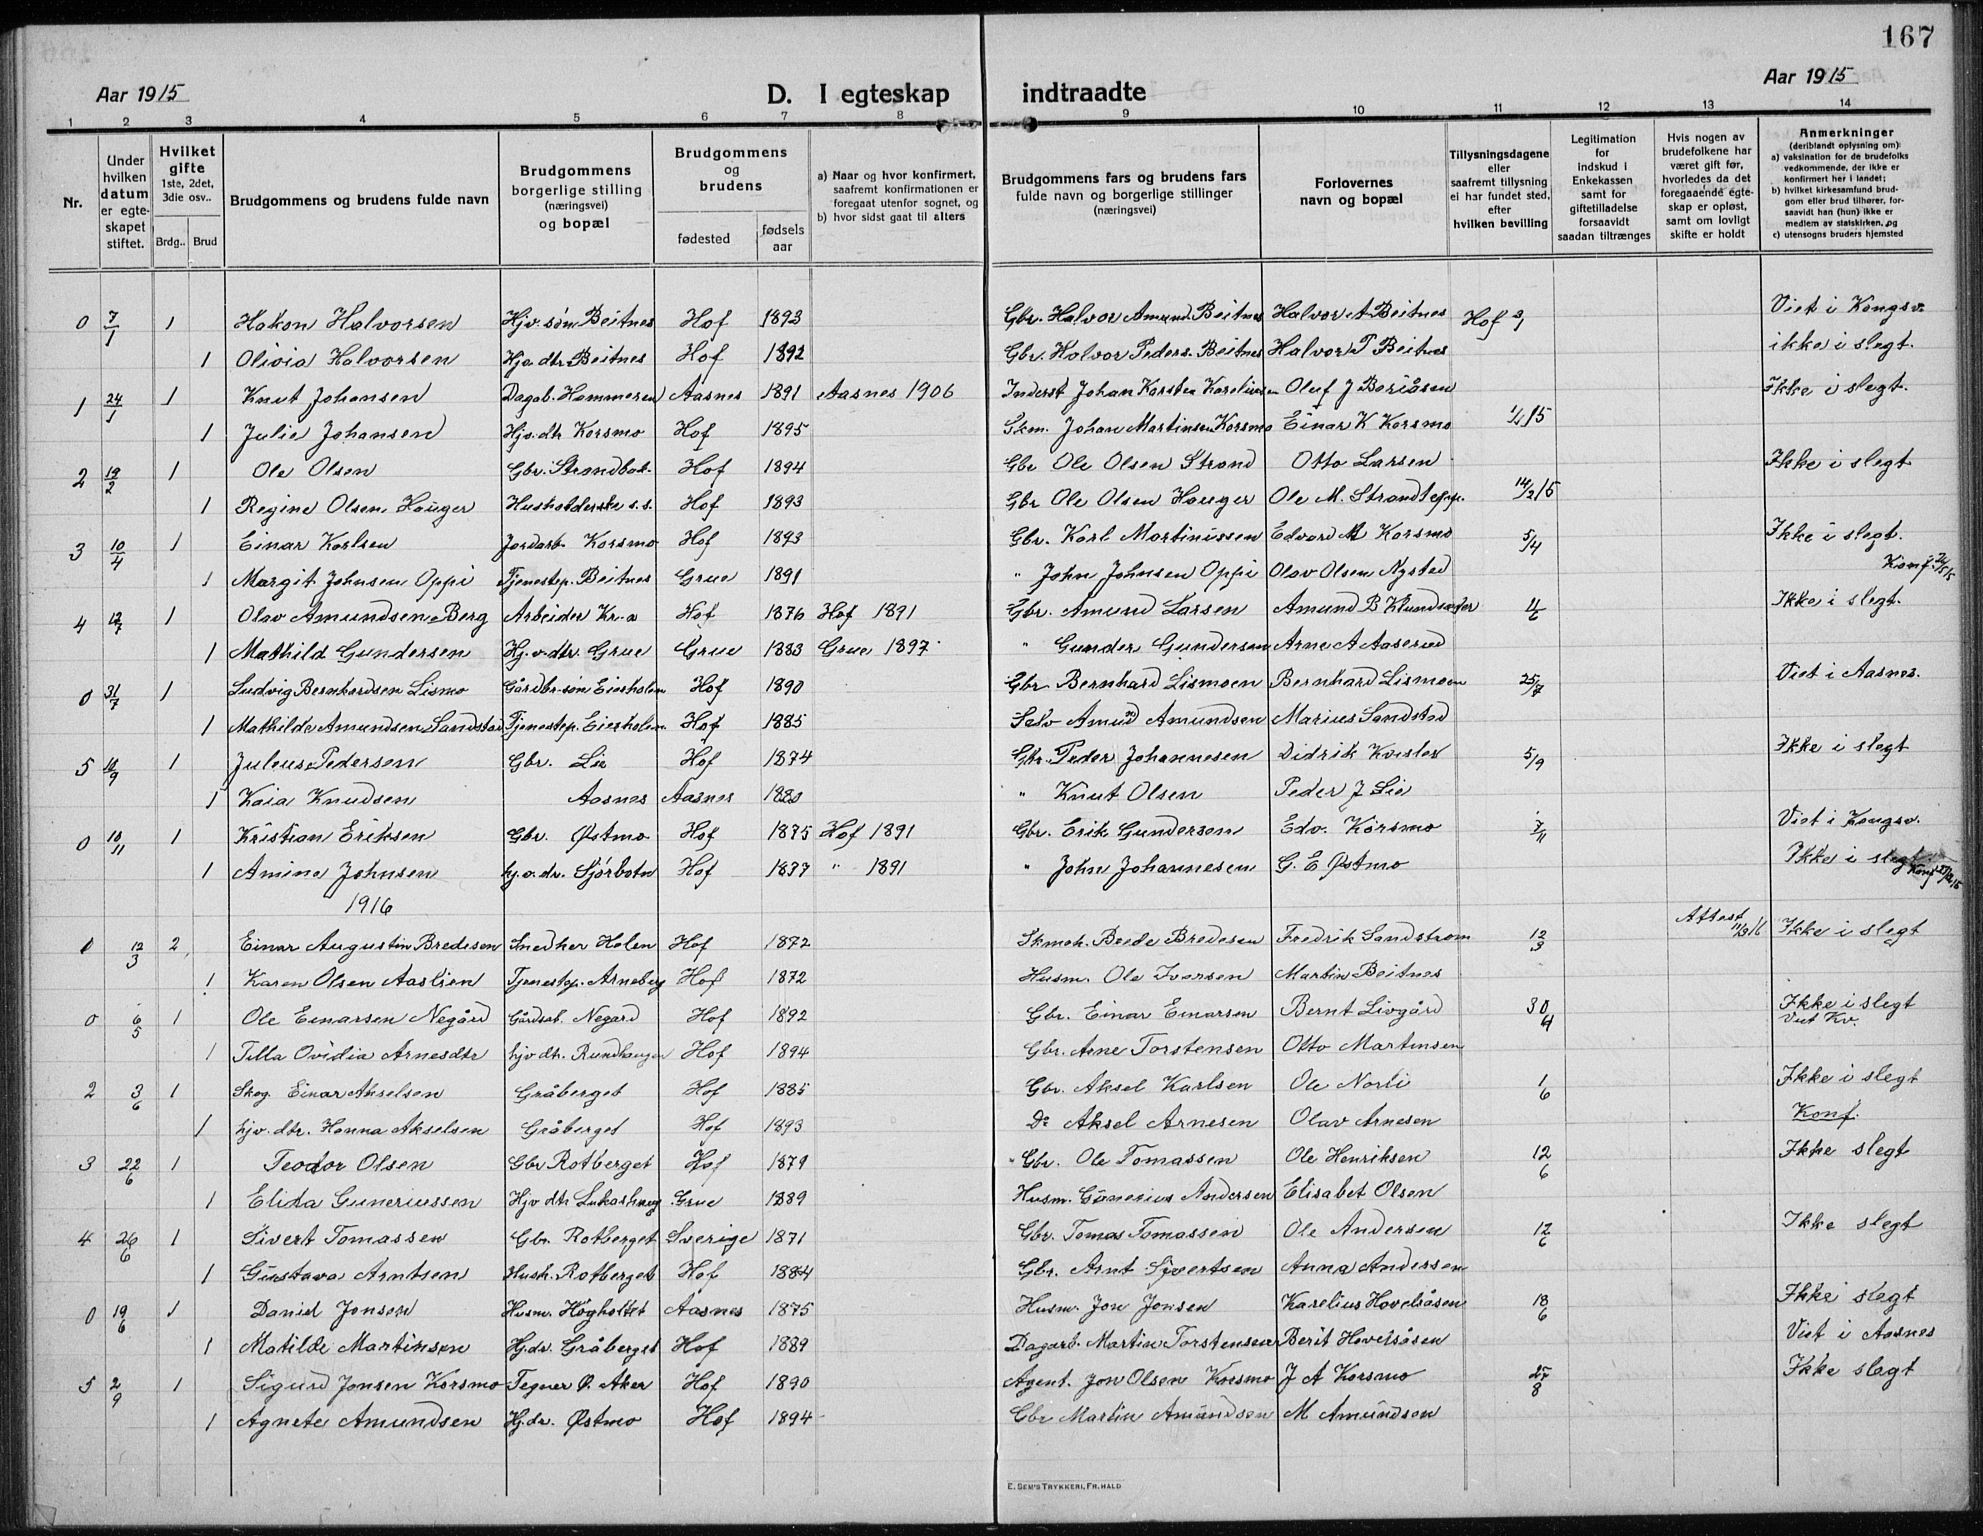 167
Aar 1915 D. I egteskap indtraadte Aar 1915
1 2 3 4 5 6 7 8 9 10 11 12 13 14
Nr.
Under hvilken datum er egteskapet stiftet.
Hvilket gifte 1ste, 2det, 3die osv.. Brdg.. Brud
Brudgommens og brudens fulde navn
Brudgommens borgerlige stilling (næringsvei) og bopæl
Brudgommens og brudens fødested fødsels aar
a) Naar og hvor konfirmert, saafremt konfirmationen er foregaat utenfor sognet, og b) hvor sidst gaat til alters
Brudgommens fars og brudens fars fulde navn og borgerlige stillinger (næringsvei)
Forlovernes navn og bopæl
Tillysningsdagene eller saafremt tillysning ei har fundet sted, efter hvilken bevilling
Legitimation for indskud i Enkekassen samt for giftetilladelse forsaavidt saadan tiltrænges
Hvis nogen av brudefolkene har været gift før, hvorledes da det foregaaende egteskap er opløst, samt om lovligt skifte er holdt
Anmerkninger (deriblandt oplysning om): a) vaksination for de brudefolks vedkommende, der ikke er konfirmert her i landet; b) hvilket kirkesamfund brudgom eller brud tilhører, forsaavidt han (hun) ikke er medlem av statskirken, og c) utensogns bruders hjemsted
0 7/1 1 Hakon Halvorsen Hjv. søn Beitnes Hof 1893 Gbr. Halvor Amund. Beitnes Halvor A Beitnes Hof 3/1 Viet i Kongsv.
1 Olivia Halvorsen Hjv. dtr. Beitnes Hof 1892 Gbr. Halvor Peders. Beitnes Halvor P Beitnes ikke i slegt.
1 24/1 1 Knut Johansen Dagab. Hammeren Aasnes 1891 Aasnes 1906 Inderst Johan Karsten Kareliusen Oluf J Beriåsen Ikke i slegt.
1 Julie Johansen Hjv. dtr Korsmo Hof 1895 Skm. Johan Martinsen Korsmo Einar K Korsmo 1/1 15
2 19/2 1 Ole Olsen Gbr. Strandbak. Hof 1894 Gbr Ole Olsen Strand Otto Larsen Ikke i slegt
1 Regine Olsen Hauger Husholderske s.s. Hof 1893 Gbr Ole Olsen Hauger Ole M. Strandtepp. 14/2 15
3 10/4 1 Einar Karlsen Jordarb. Korsmo Hof 1893 Gbr. Karl Martinussen Edvard M Korsmo 5/4 Ikke i slegt.
1 Margit Johnsen Oppi Tjenestep. Beitnes Grue 1891 " John Johnsen Oppi Olav Olsen Nysted Konf.
4 12/7 1 Olav Amundsen Berg Arbeider Kr-a Hof 1876 Hof 1891 Gbr. Amund Larsen Amund B Klundsæter 11/6 Ikke i slegt.
1 Mathild Gundersen Hj.v.dtr. Grue Grue 1883 Grue 1897 " Gunder Gundersen Arne A Aaserud
0 31/7 1 Ludvig Bernhardsen Lismo Gårdbr. søn Eiesholen Hof 1890 Gbr Bernhard Lismoen Bernhard Lismoen 25/7 Viet i Aasnes.
1 Mathilde Amundsen Sandstad Tjenestep. Eiesholen Hof 1885 Selv Amund Amundsen Marius Sandstad
5 10/9 1 Juleus Pedersen Gbr. Lie Hof 1874 Gbr. Peder Johannesen Didrik Kvesler 5/9 Ikke i slegt
1 Kaia Knudsen Aasnes Aasnes 1880 " Knut Olsen Peder J Lie
0 10/11 1 Kristian Eriksen Gbr. Østmo Hof 1875 Hof 1891 Gbr. Erik Gundersen Edv. Korsmo 7/11 Viet i Kongsv.
1 Amine Johnsen hj.v.dr. Sjørbotn Hof 1877 " 1891 " John Johannesen G. E Østmo Ikke i slegt Konf
1916
0 12/3 2 Einar Augustin Bredesen Snedker Holen Hof 1872 Skmoh. Brede Bredesen Fredrik Sandstrøm 12/3 Attest 11/3 16 Ikke i slegt
1 Karen Olsen Aaslien Tjenestep. Arneberg Hof 1872 Husm. Ole Iversen Martin Beitnes
0 6/5 1 Ole Einarsen Negård Gårdsab. Negard Hof 1892 Gbr. Einar Einarsen Bernt Livgård 30/4 Ikke i slegt Viet Kv.
1 Tilla Ovidia Arnesdtr hjv dtr. Rundhaugen Hof 1894 Gbr. Arne Torstensen Otto Martinsen
2 3/6 1 Skog. Einar Akselsen Gråberget Hof 1885 Gbr. Aksel Karlsen Ole Norli 1/6 Ikke i slegt
1 hjv. dtr. Hanna Akselsen Gråberget Hof 1893 Do Aksel Arnesen Olav Arnesen Konf.
3 22/6 1 Teodor Olsen Gbr Rotberget Hof 1879 Gbr. Ole Tomassen Ole Henriksen 12/6 Ikke slegt
1 Elida Guneriussen Hjv dtr Lukashaug Grue 1889 Husm. Gunerius Andersen Elisabet Olsen
4 26/6 1 Sivert Tomassen Gbr. Rotberget Sverige 1871 Gbr. Tomas Tomassen Ole Andersen 12/6 Ikke slegt
1 Gustava Arntsen Hush. Rotberget Hof 1884 Gbr. Arnt Syvertsen Anna Andersen
0 19/6 1 Daniel Jonsen Husm. Högholtet Aasnes 1875 Husm. Jon Jonsen Karelius Hovelsåsen 18/6 Ikke slegt
1 Matilde Martinsen Hj.dr. Gråberget Hof 1889 Dagarb. Martin Torstensen Berit Hovelsåsen Viet i Aasnes
5 2/9 1 Sigurd Jonsen Korsmo Tegner Ø. Aker Hof 1890 Agent. Jon Olsen Korsmo J A Korsmo 27/8 Ikke slegt
1 Agnete Amundsen Hj.dr. Østmo Hof 1894 Gbr Martin Amundsen M Amundsen
E. SEM'S TRYKKERI, FR.HALD